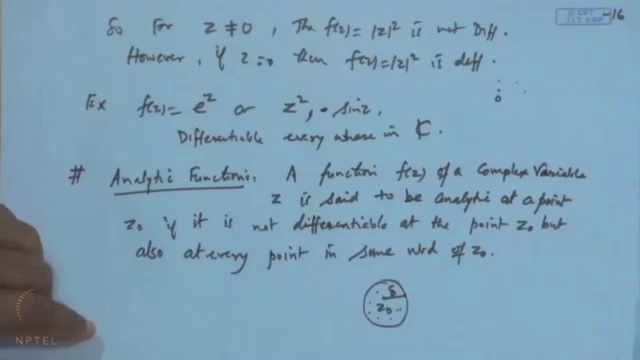 So For z ≠ 0, The f(z) = |z|² is not Diff.
However, if z = 0 then f(z) = |z|² is diff.
Ex f(z) = e^z or z², sin z,
Differentiable every where in ℂ.
# Analytic Functions: A function f(z) of a Complex Variable
z is said to be analytic at a point
z₀ if it is not differentiable at the point z₀ but
also at every point in some nbd of z₀.
δ
z₀
NPTEL